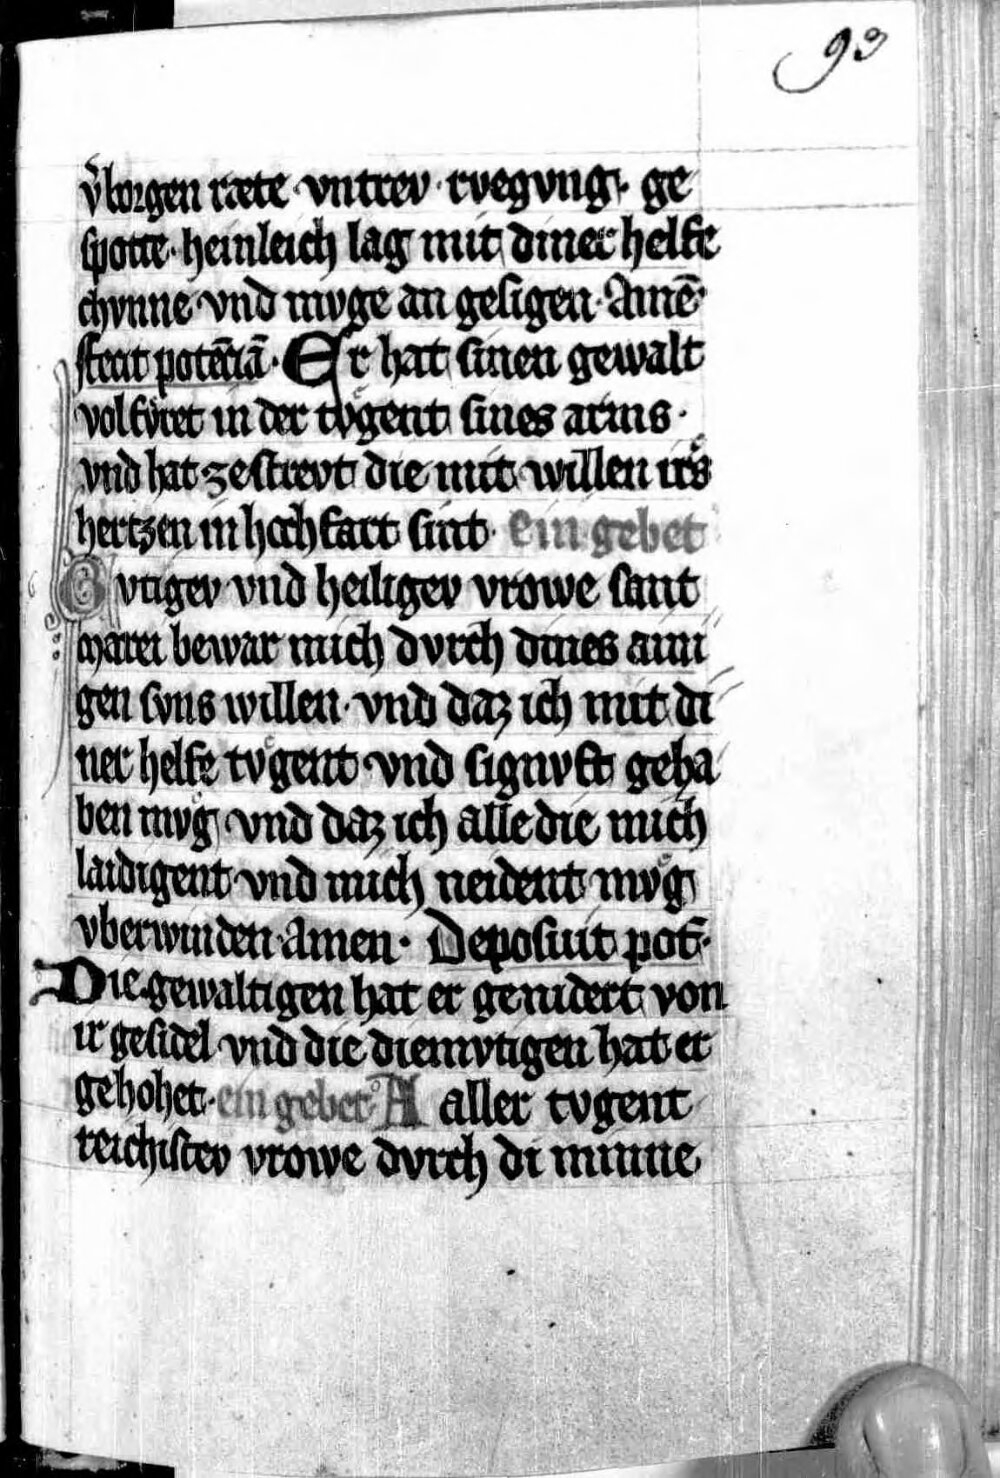 93
v̉borgen ræte · vntrev · rvegvng · ge
spotte · heinleich lag mit diner helfe
chvnne · vnd mvge an gesigen · Amē ·
fecit potēciā · Er hat sinen gewalt
volfvͤret in der tvͤgent sines arms ·
vnd hat zestrevt die mit willen irsͤ
hertzen in hochfart sint · Ein gebet
Gvtigev vnd heiliger vrowe sant
marei bewar mich dvrch dines aini
gen svns willen · vnd daz ich mit di
ner helfe tvͤgent vnd signvft geha
ben mvͤg vnd daz ich alle die mich
laidigent vnd mich neident mvͤg
vberwinden · Amen · Deposuit pot̄ ·
Die gewaltigen hat er genidert von
ir gesidel vnd die diemvtigen hat er
gehohet · ein gebet A aller tvgent
reichistev vrowe dvrch di minne